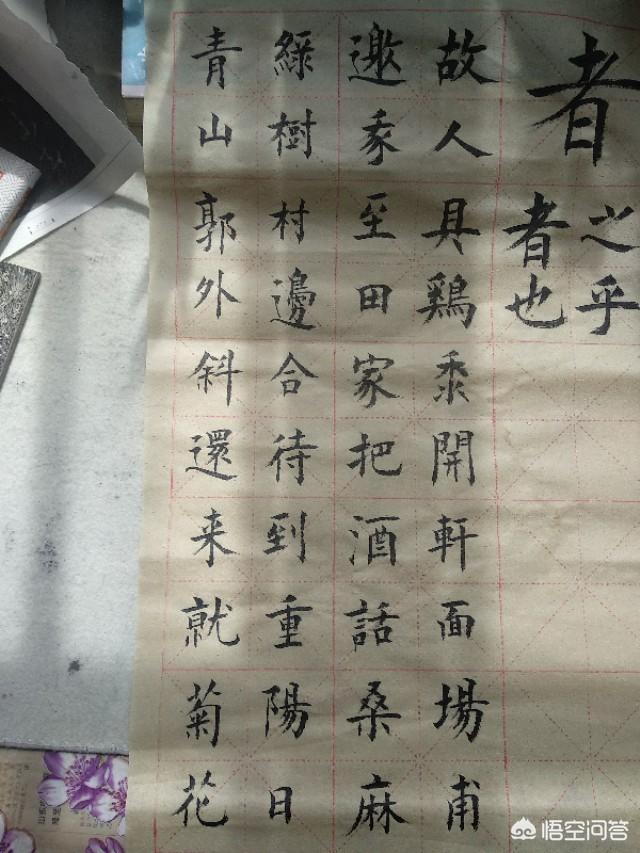 者
之乎
者也
故人具鷄黍開軒面場甫
邀我至田家把酒話桑麻
綠樹村邊合待到重陽日
青山郭外斜還来就菊花
悟空问答